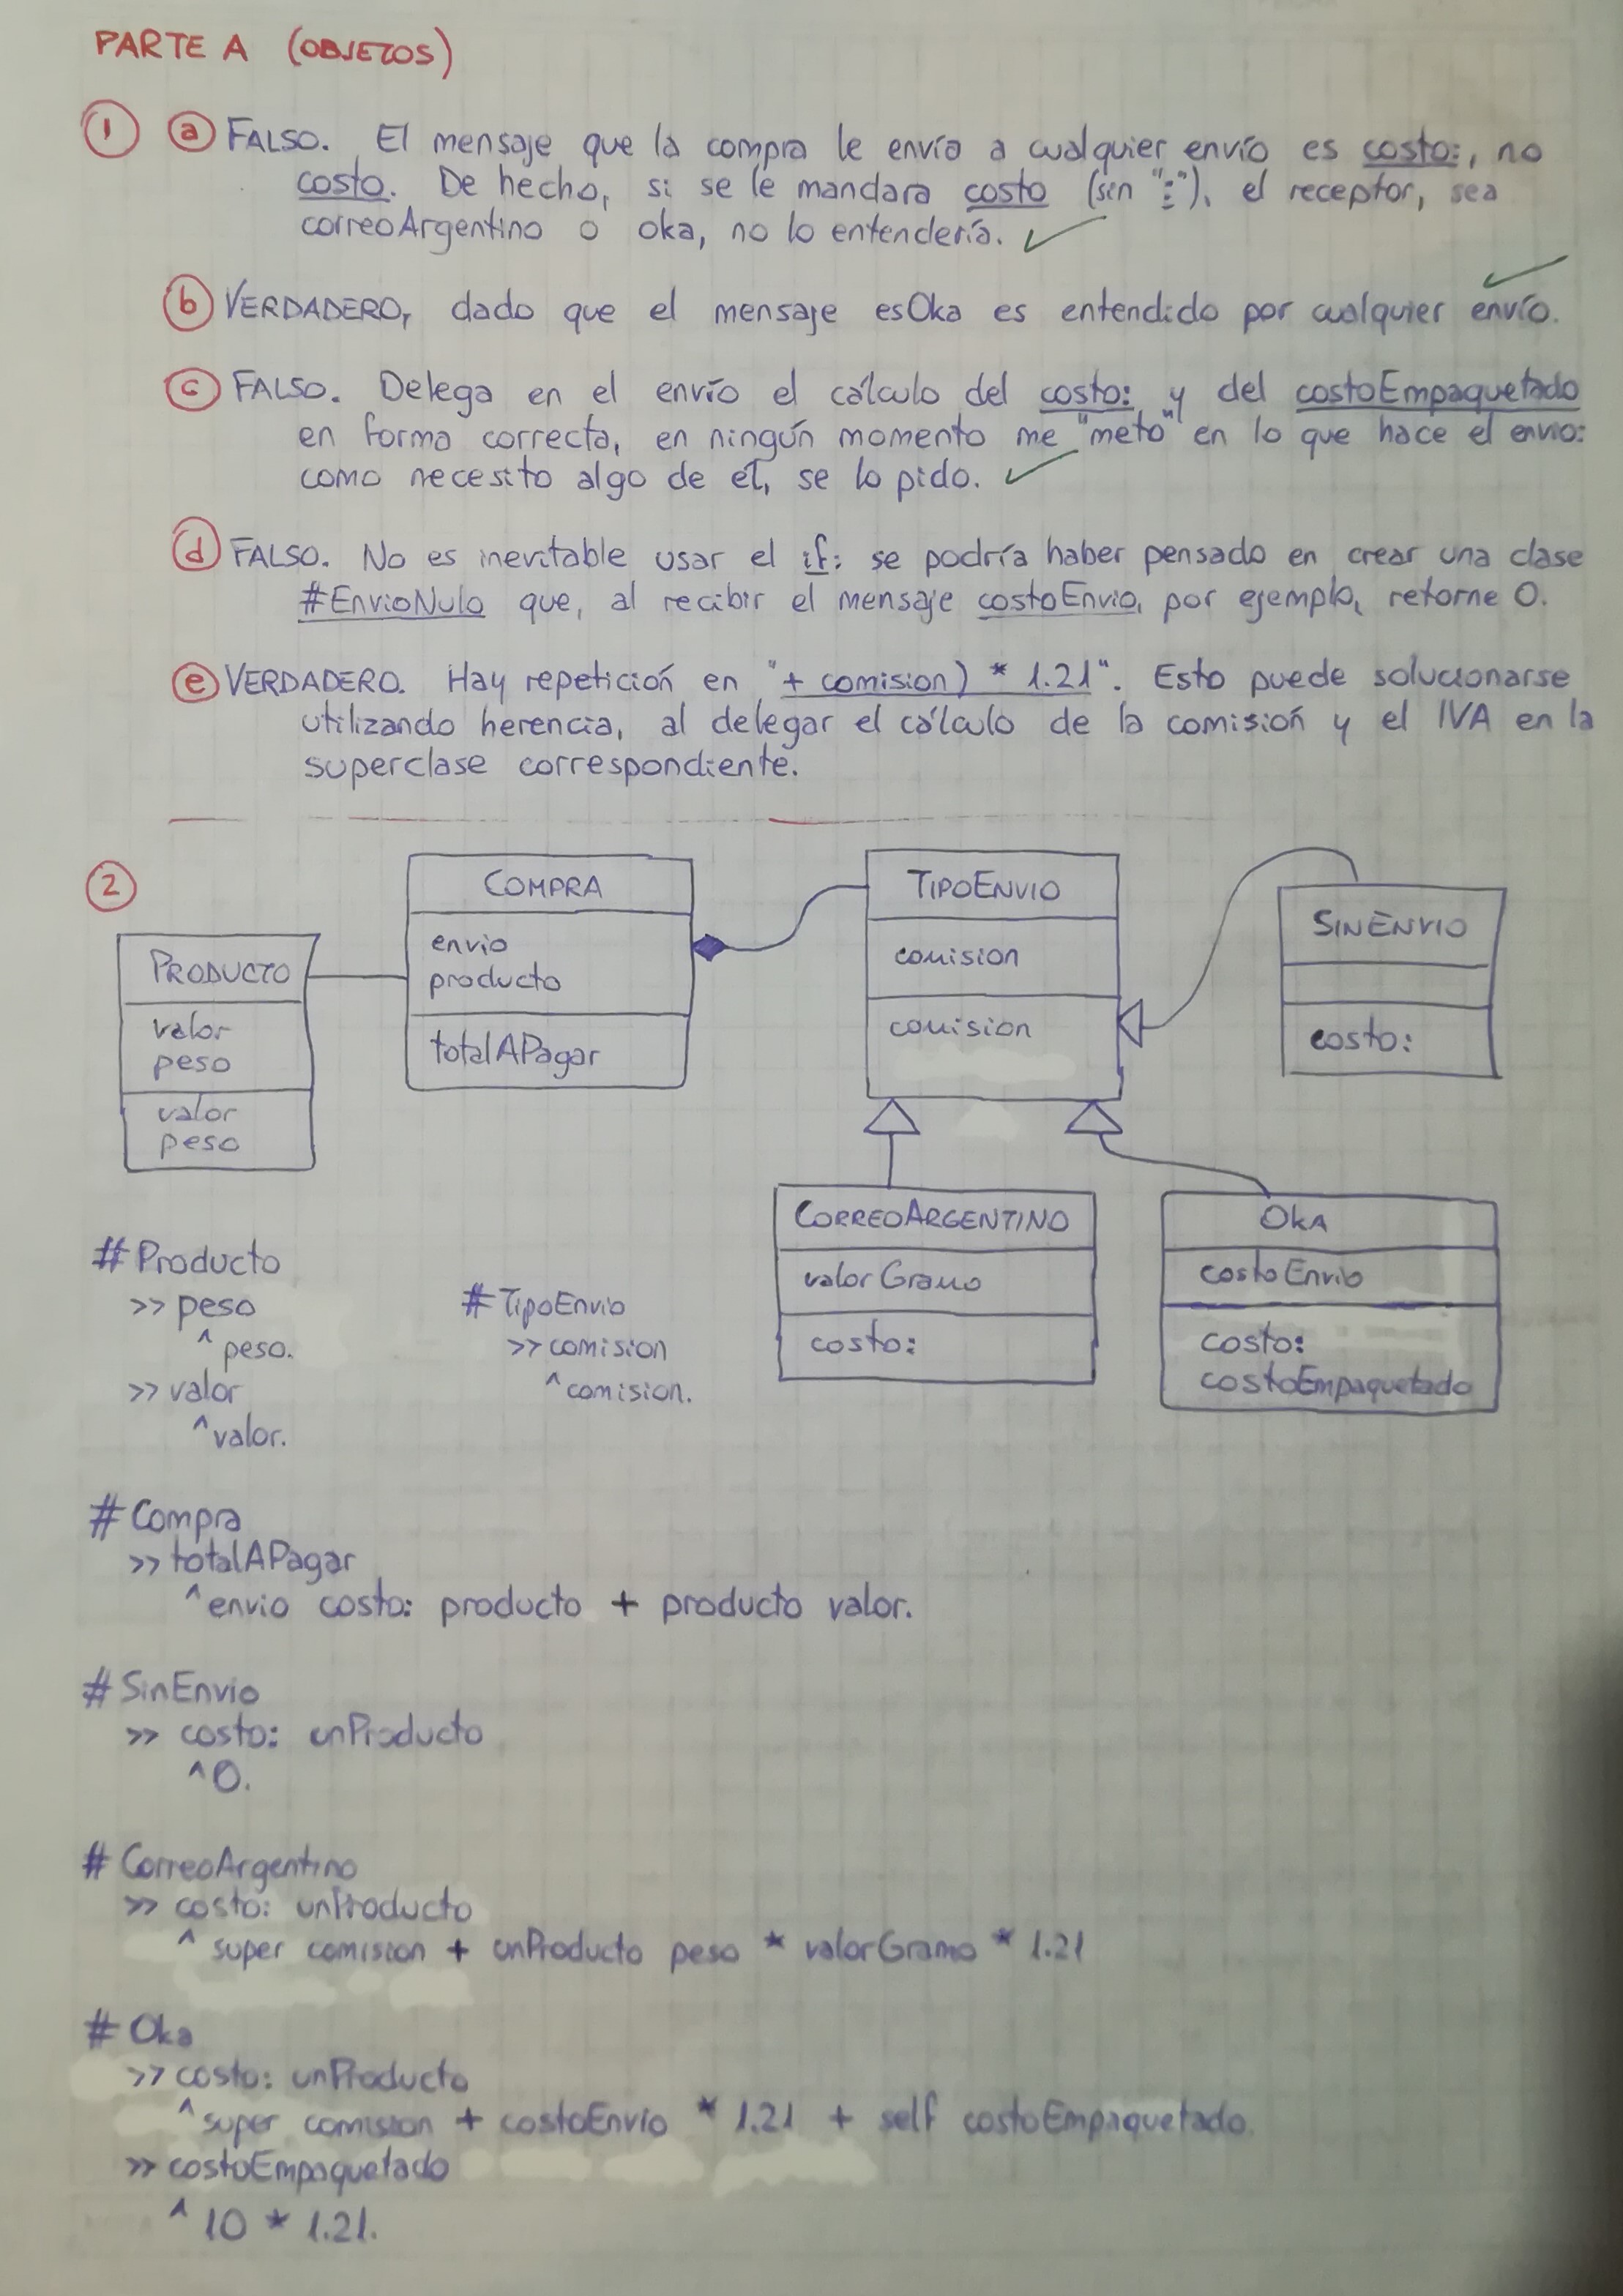 PARTE A (OBJETOS)
1 a FALSO. El mensaje que la compra le envía a cualquier envío es costo:, no
costo. De hecho, si se le mandara costo (sin ":"), el receptor, sea
correoArgentino o oka, no lo entendería.
b VERDADERO, dado que el mensaje esOka es entendido por cualquier envío.
c FALSO. Delega en el envío el cálculo del costo: y del costoEmpaquetado
en forma correcta, en ningún momento me "meto" en lo que hace el envio:
como necesito algo de él, se lo pido.
d FALSO. No es inevitable usar el if: se podría haber pensado en crear una clase
#EnvioNulo que, al recibir el mensaje costoEnvio, por ejemplo, retorne 0.
e VERDADERO. Hay repetición en "+ comision) * 1.21". Esto puede solucionarse
utilizando herencia, al delegar el cálculo de la comisión y el IVA en la
superclase correspondiente.
2
PRODUCTO
valor
peso
valor
peso
COMPRA
envio
producto
totalAPagar
TIPOENVIO
comision
comision
SINENVIO
costo:
CORREOARGENTINO
valorGramo
costo:
OKA
costoEnvio
costo:
costoEmpaquetado
#Producto
>> peso
^ peso.
>> valor
^ valor.
#TipoEnvio
>> comision
^ comision.
#Compra
>> totalAPagar
^ envio costo: producto + producto valor.
#SinEnvio
>> costo: unProducto
^ 0.
#CorreoArgentino
>> costo: unProducto
^ super comision + unProducto peso * valorGramo * 1.21
#Oka
>> costo: unProducto
^ super comision + costoEnvio * 1.21 + self costoEmpaquetado.
>> costoEmpaquetado
^ 10 * 1.21.